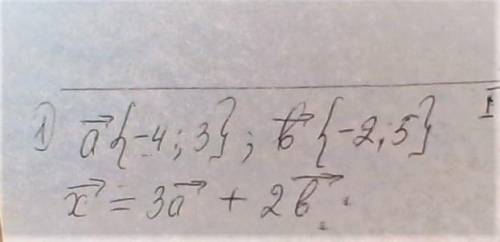 1) a⃗ {-4; 3}; b⃗ {-2; 5}
x⃗ = 3a⃗ + 2b⃗.